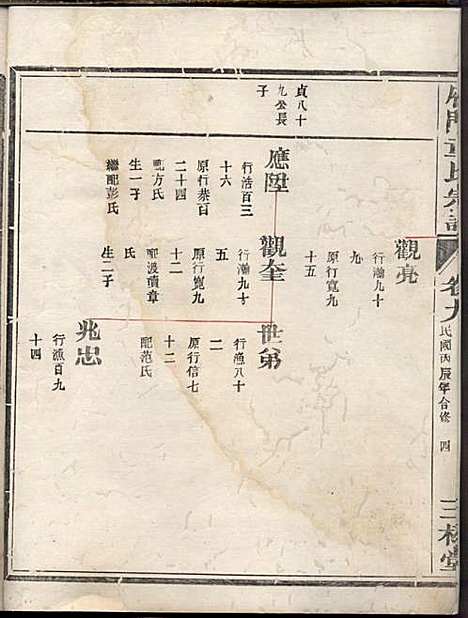 卷九
民國丙辰年合修
四
三槐堂
觀亮
行瀚九十
九
原行寬九
十五
貞八十
九公長
子
應陞
行浩百三
十六
原行恭百
二十四
配方氏
生一子
繼配彭氏
觀奎
行瀚九十
五
原行寬九
十二
配渡磧章
氏
生二子
世弟
行漁八十
二
原行信七
十二
配范氏
兆忠
行漁百九
十四